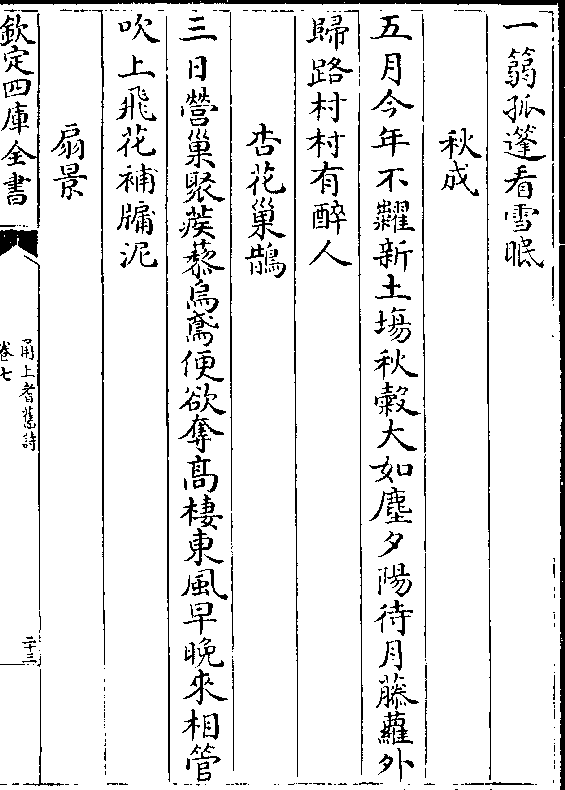 一篛孤篷看雪眠
秋成
五月今年不糶新土塲秋糓大如塵夕陽待月藤蘿外
歸路村村有醉人
杏花巢鵲
三日營巢聚蒺藜烏鳶便欲奪髙棲東風早晚來相管
吹上飛花補牗泥
扇景
欽定四庫全書
甬上耆舊詩
卷七
二十三